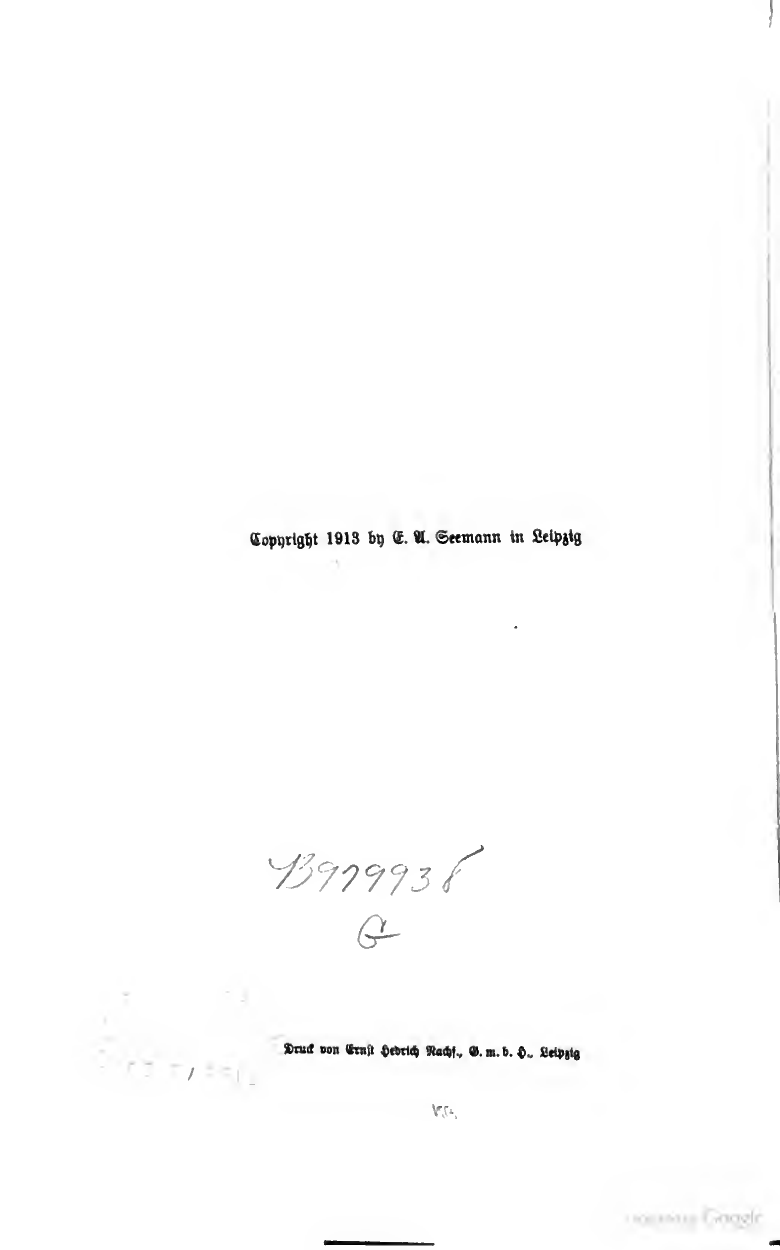 Copyright 1913 by E. A. Seemann in Leipzig
B979938
G
Druck von Ernst Hedrich Nachf., G. m. b. H., Leipzig
Google